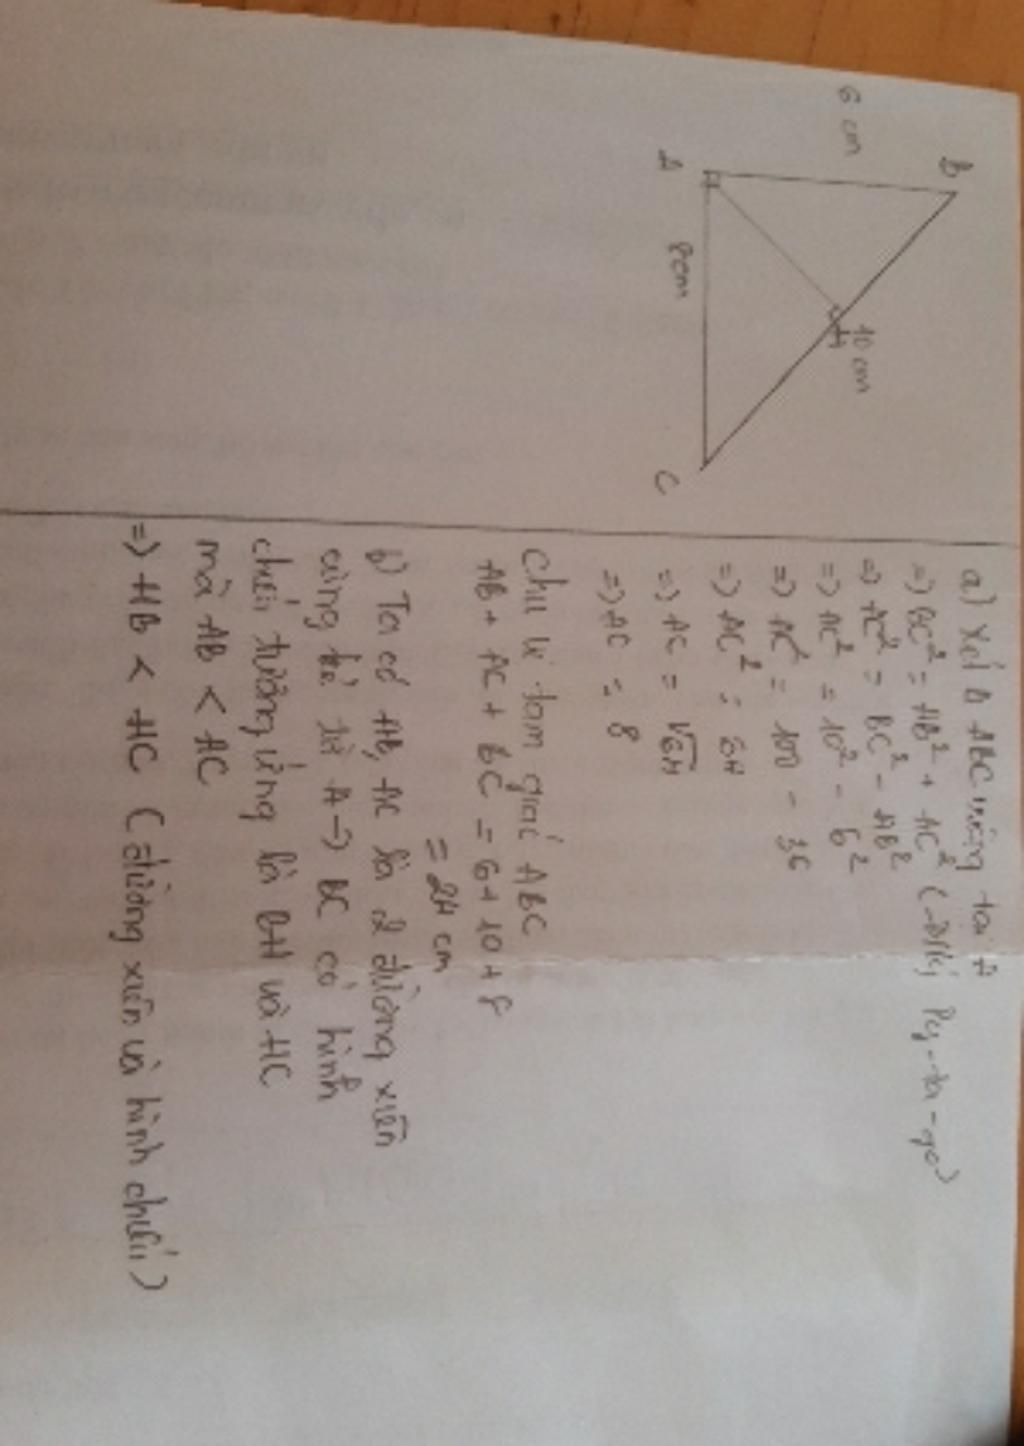 B
6 cm
10 cm
H
A
8cm
C
a) Xét Δ ABC vuông tại A
=) BC² = AB² + AC² (Đ/lý Py-ta-go)
=) AC² = BC² - AB²
=) AC² = 10² - 6²
=) AC² = 100 - 36
=) AC² = 64
=) AC = √64
=) AC = 8
Chu vi tam giác ABC
AB + AC + BC = 6 + 10 + 8
= 24 cm
b) Ta có AB, AC là 2 đường xiên
cùng kẻ từ A -> BC có hình
chiếu tương ứng là BH và HC
mà AB < AC
=) HB < HC (đường xiên và hình chiếu)